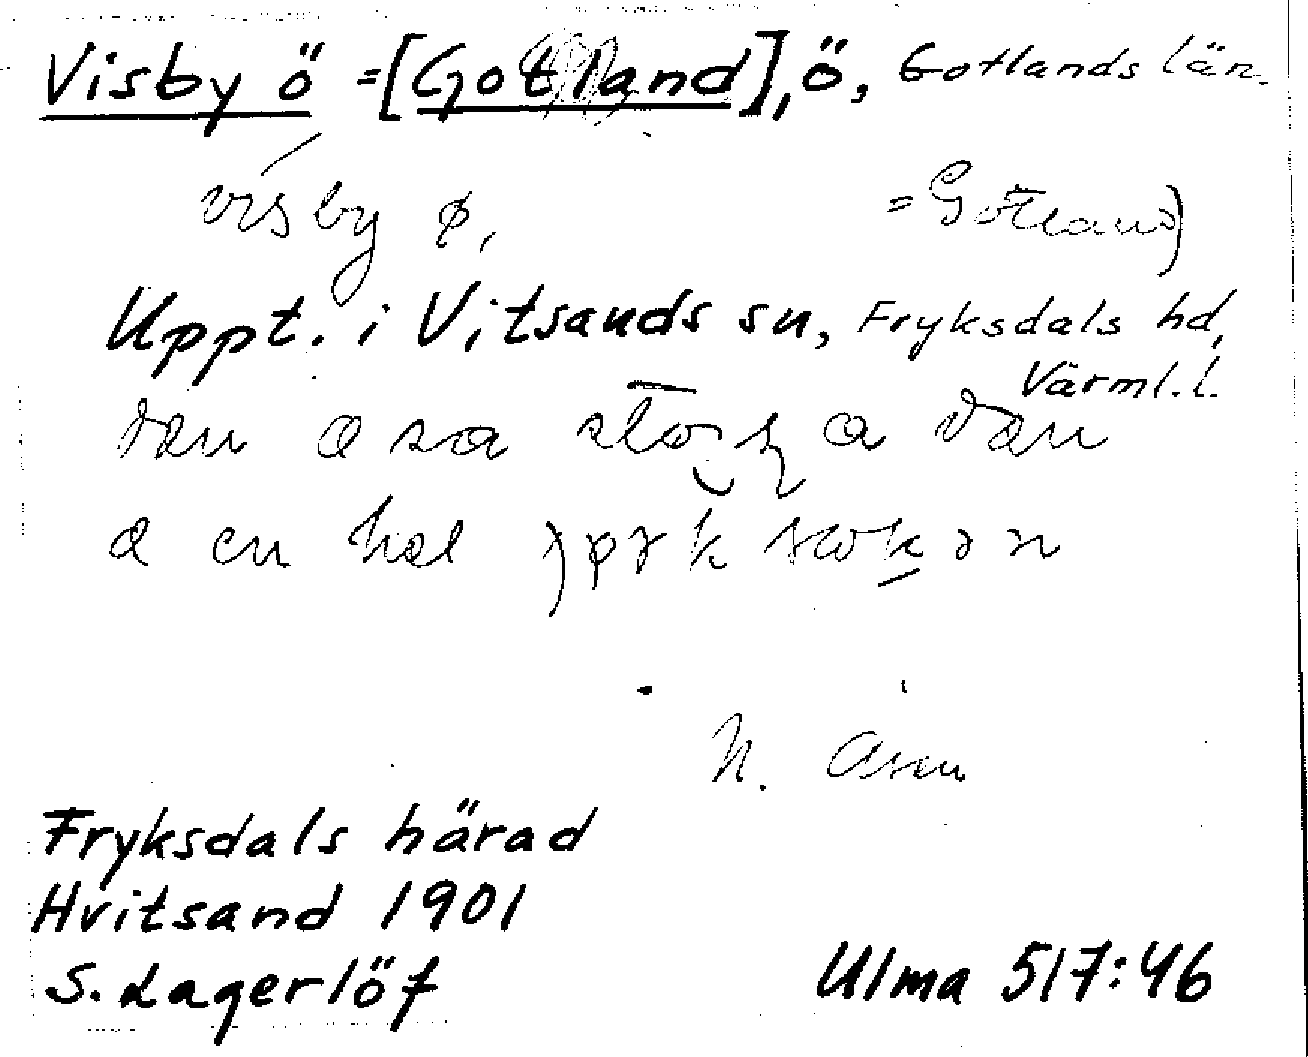 Visby ö = [Gotland], ö, Gotlands län.
visby ø, = Gotland)
Uppt. i Vitsands sn, Fryksdals hd,
Värml. l.
dæn a sa a dæn
a en hæl
N. Åsen
Fryksdals härad
Hvitsand 1901
S. Lagerlöf
Ulma 517:46